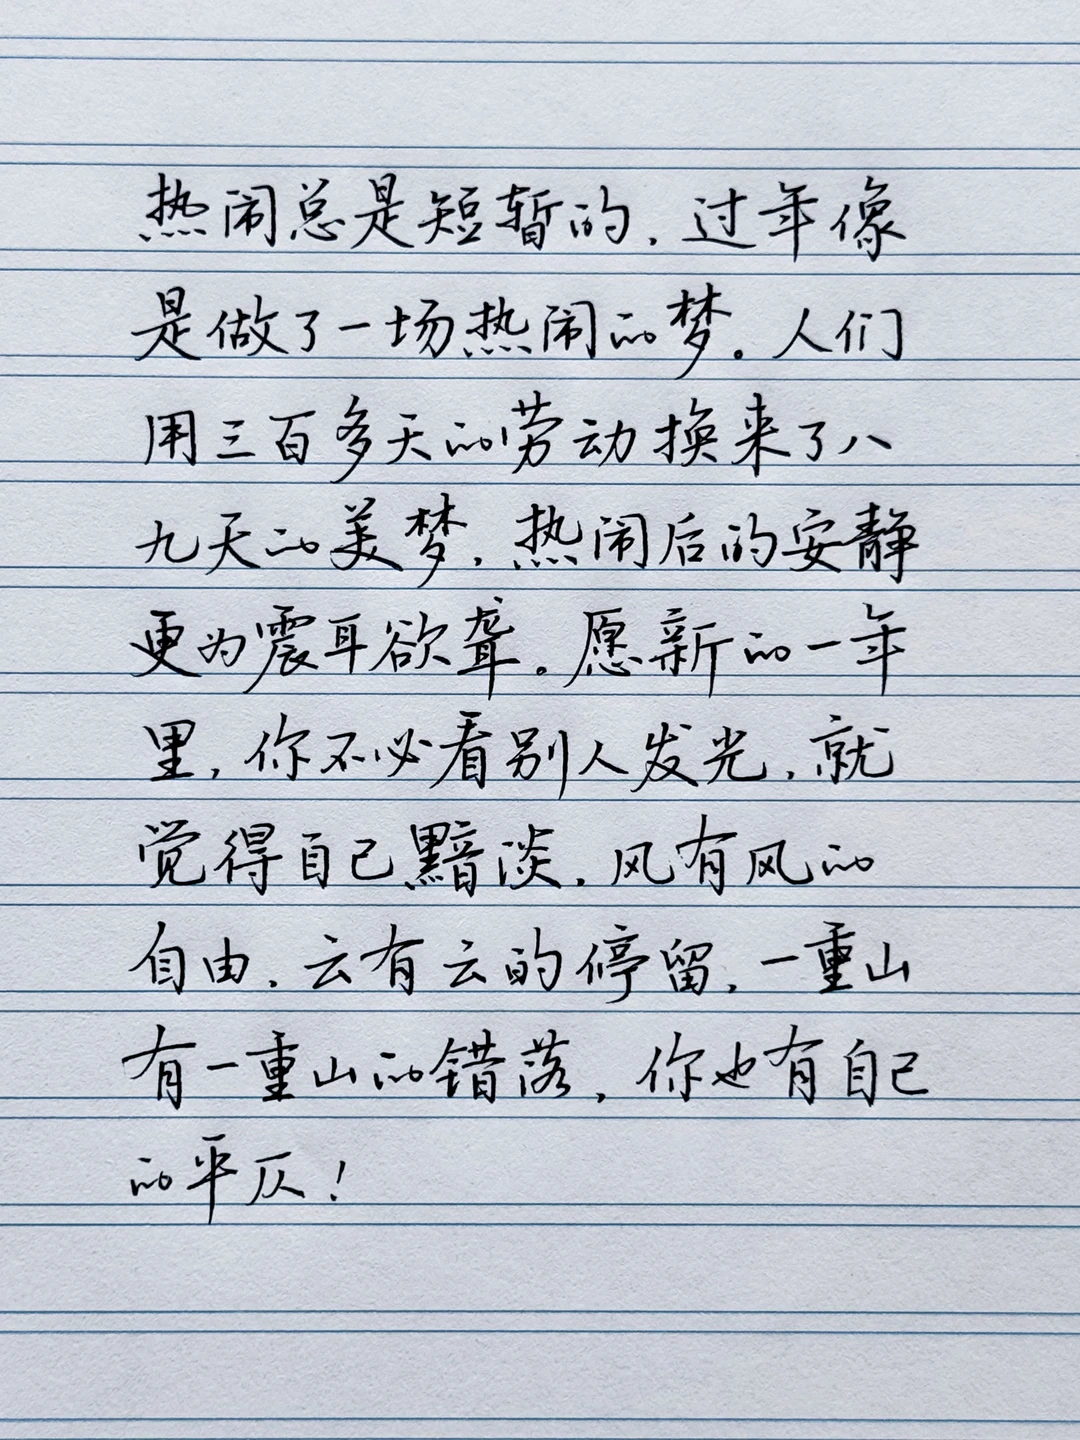 热闹总是短暂的，过年像
是做了一场热闹的梦。人们
用三百多天的劳动换来了八
九天的美梦，热闹后的安静
更为震耳欲聋。愿新的一年
里，你不必看别人发光，就
觉得自己黯淡，风有风的
自由，云有云的停留，一重山
有一重山的错落，你也有自己
的平仄！